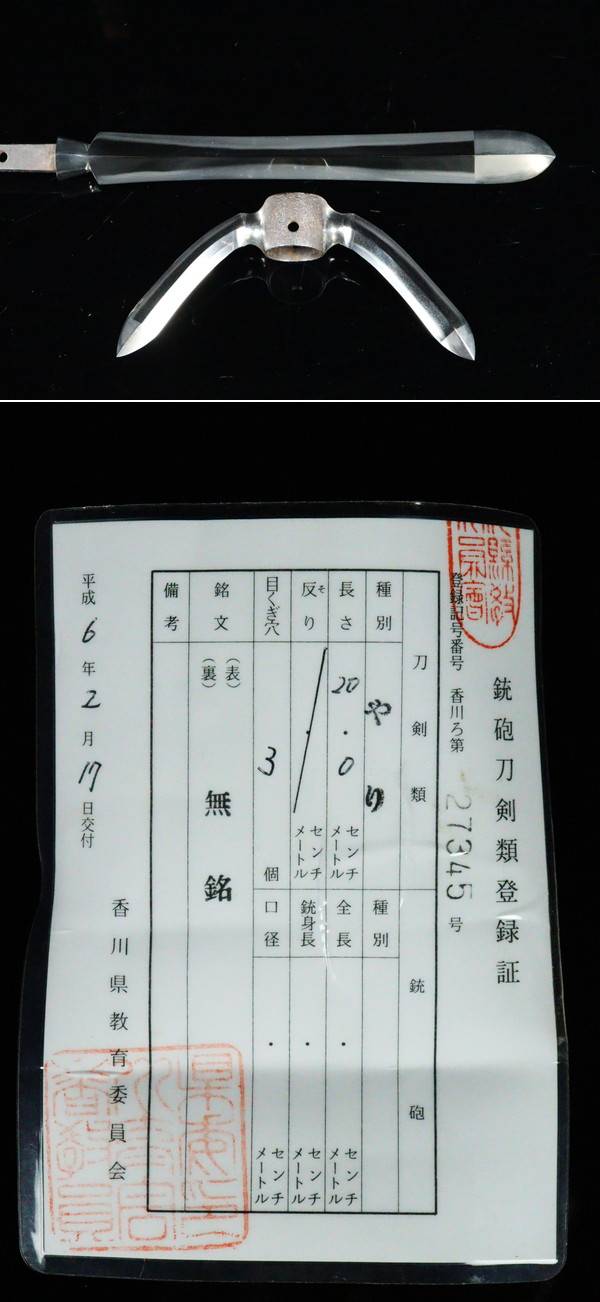 銃砲刀剣類登録証
登録記号番号 香川ろ第 27345 号
刀剣類
種別 やり
長さ 20.0 センチメートル
反り そ . センチメートル
目くぎ穴 3 個
銘文 (表) (裏) 無銘
備考
銃砲
種別
全長 . センチメートル
銃身長 . センチメートル
口径 . センチメートル
平成 6 年 2 月 17 日交付
香川県教育委員会